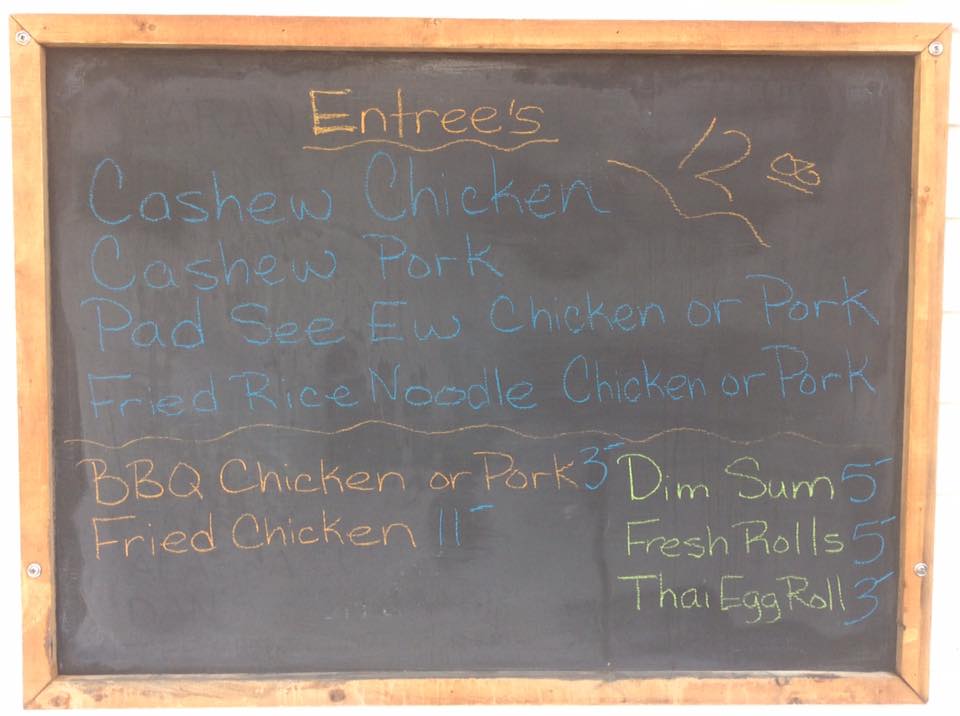 Entree's
Cashew Chicken 12 00
Cashew Pork
Pad See Ew Chicken or Pork
Fried Rice Noodle Chicken or Pork
BBQ Chicken or Pork 3-
Fried Chicken 11-
Dim Sum 5-
Fresh Rolls 5-
Thai Egg Roll 3-